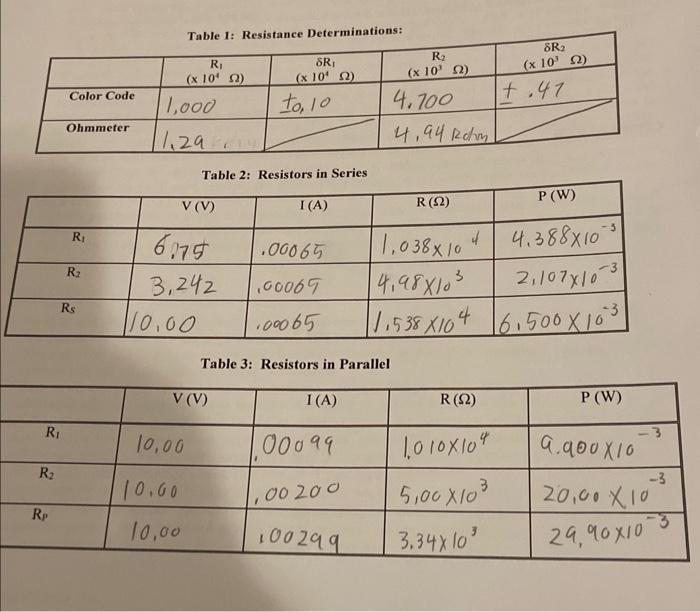 Table 1: Resistance Determinations:
R₁ (x 10⁴ Ω) δR₁ (x 10⁴ Ω) R₂ (x 10³ Ω) δR₂ (x 10³ Ω)
Color Code 1.000 ±0.10 4.700 ± .47
Ohmmeter 1.29 4.94 kohm
Table 2: Resistors in Series
V (V) I (A) R (Ω) P (W)
R₁ 6.75 .00065 1.038x10⁴ 4.388x10⁻³
R₂ 3.242 .00065 4.98x10³ 2.107x10⁻³
Rs 10.00 .00065 1.538x10⁴ 6.500x10⁻³
Table 3: Resistors in Parallel
V (V) I (A) R (Ω) P (W)
R₁ 10.00 .00099 1.010x10⁴ 9.900x10⁻³
R₂ 10.00 .00200 5.00x10³ 20.00x10⁻³
Rp 10.00 .00299 3.34x10³ 29.90x10⁻³